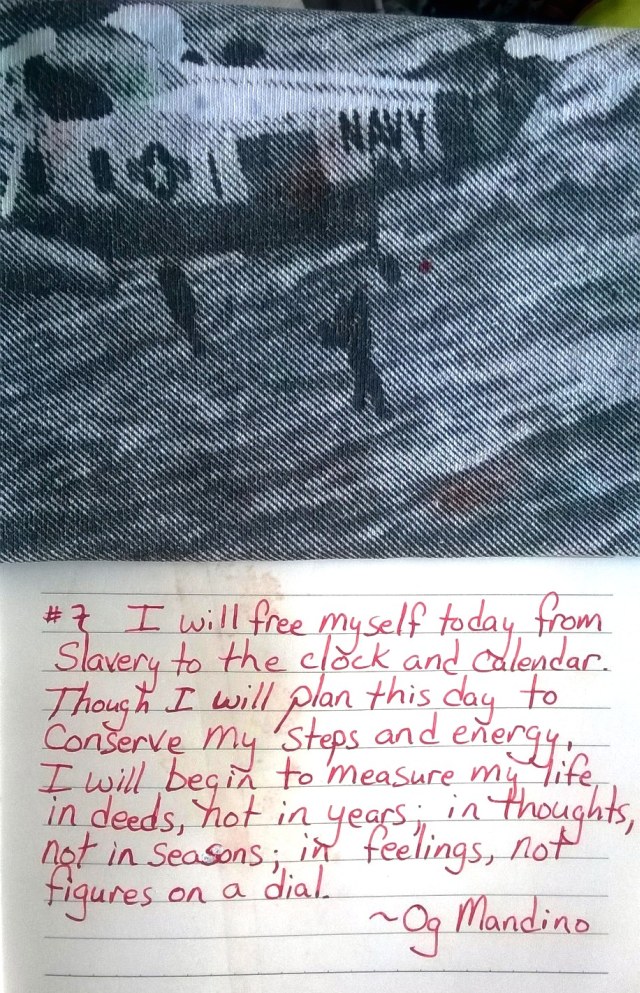 NAVY
#7 I will free myself today from
Slavery to the clock and calendar.
Though I will plan this day to
Conserve my steps and energy,
I will begin to measure my life
in deeds, not in years; in thoughts,
not in seasons; in feelings, not
figures on a dial.
~Og Mandino